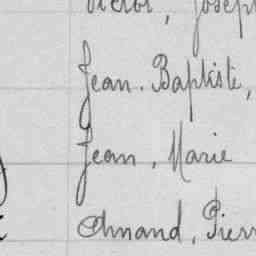 Victor, Joseph
Jean. Baptiste,
Jean, Marie
Amand, Pierr